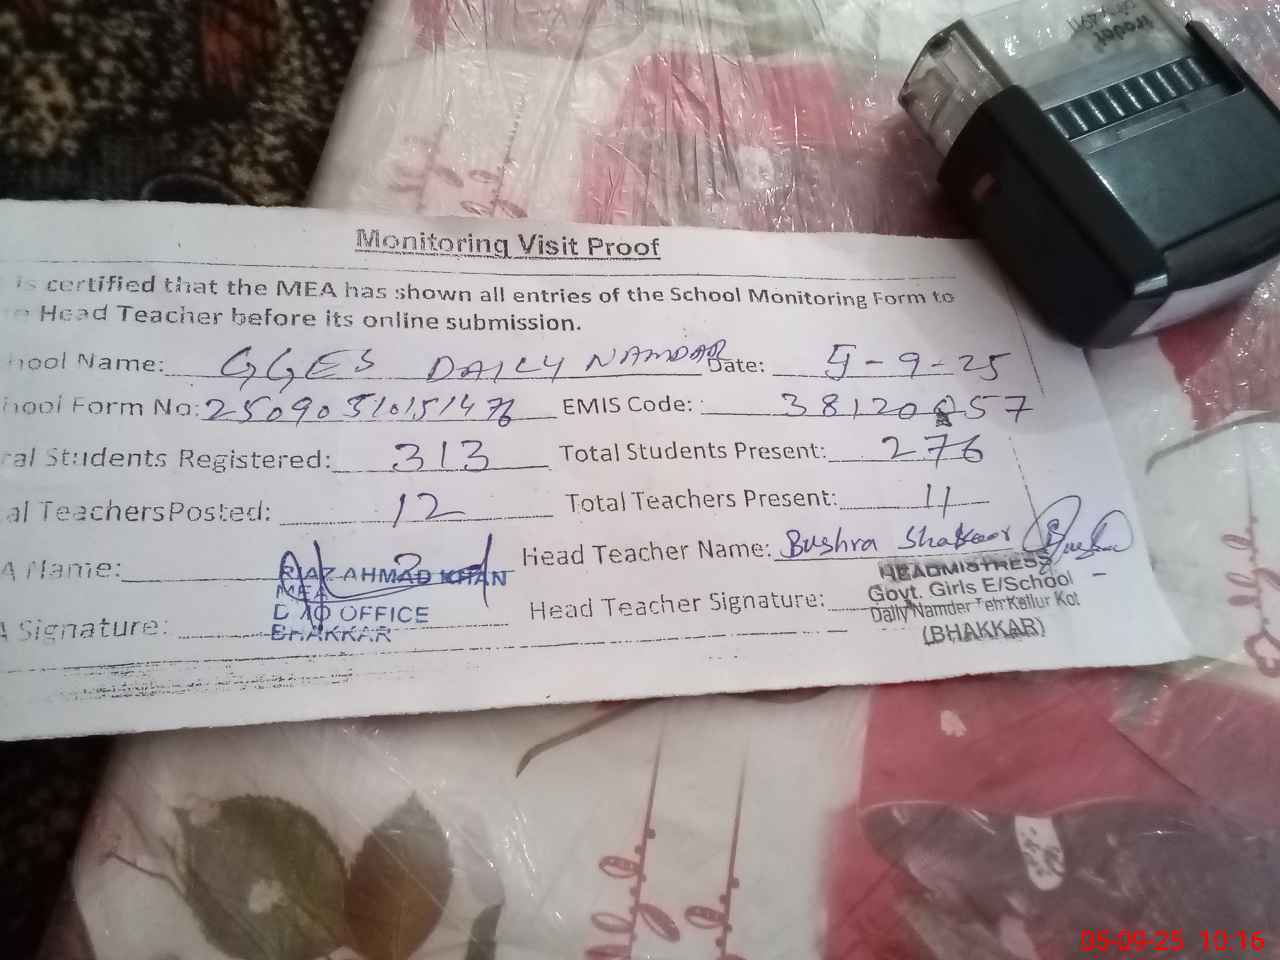 Monitoring Visit Proof
is certified that the MEA has shown all entries of the School Monitoring Form to
Head Teacher before its online submission.
hool Name: GGES DAILY NAMDAR Date: 5-9-25
hool Form No: EMIS Code: 38120057
al Students Registered: 313 Total Students Present: 276
al Teachers Posted: 12 Total Teachers Present: 11
A Name: Head Teacher Name: Bushra Shakoor
RIAZ AHMAD KHAN
MEA
OFFICE
BHAKKAR
A Signature: Head Teacher Signature:
HEADMISTRESS
Govt. Girls E/School
Daily Namder Teh Kallur Kot
(BHAKKAR)
05-09-25 10:16